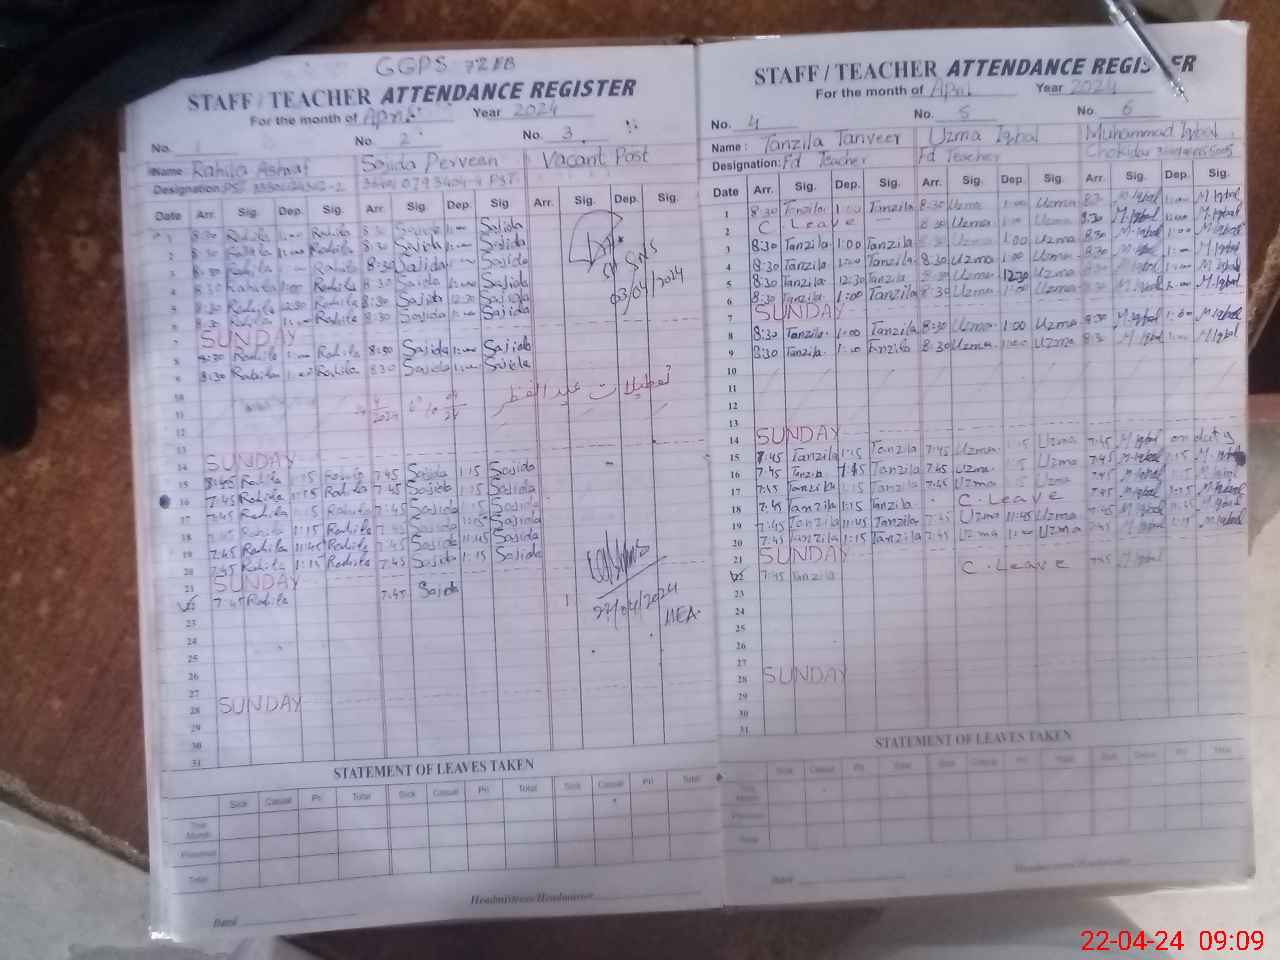 GGPS 72 EB
STAFF / TEACHER ATTENDANCE REGISTER
For the month of April Year 2024
No. 1 No. 2 No. 3
Name Rahila Ashraf Sajida Perveen Vacant Post
Designation: PST PST
Date Arr. Sig. Dep. Sig. Arr. Sig. Dep. Sig. Arr. Sig. Dep. Sig.
1 8:30 Rahila 1:00 Rahila 8:30 Sajida 1:00 Sajida
2 8:30 Rahila 1:00 Rahila 8:30 Sajida 1:00 Sajida
3 8:30 Rahila 1:00 Rahila 8:30 Sajida 1:00 Sajida
4 8:30 Rahila 1:00 Rahila 8:30 Sajida 1:00 Sajida
5 8:30 Rahila 12:30 Rahila 8:30 Sajida 12:30 Sajida
6 8:30 Rahila 1:00 Rahila 8:30 Sajida 1:00 Sajida
03/04/2024
7 SUNDAY
8 8:30 Rahila 1:00 Rahila 8:30 Sajida 1:00 Sajida
9 8:30 Rahila 1:00 Rahila 8:30 Sajida 1:00 Sajida
10
11 تعطیلات عید الفطر
12
13
14 SUNDAY
15 Rahila 1:15 Rahila 7:45 Sajida 1:15 Sajida
16 7:45 Rahila 1:15 Rahila 7:45 Sajida 1:15 Sajida
17 7:45 Rahila 1:15 Rahila 7:45 Sajida 1:15 Sajida
18 7:45 Rahila 1:15 Rahila 7:45 Sajida Sajida
19 7:45 Rahila 11:45 Rahila 7:45 Sajida 11:45 Sajida
20 7:45 Rahila 1:15 Rahila 7:45 Sajida 1:15 Sajida
21 SUNDAY
22 7:45 Rahila 7:45 Sajida
22/04/2024
MEA
23
24
25
26
27
28 SUNDAY
29
30
31
STATEMENT OF LEAVES TAKEN
Sick Casual Pri Total Sick Casual Pri Total Sick Casual Pri Total
This Month
Previous
Total
Headmistress/Headmaster
Dated
STAFF / TEACHER ATTENDANCE REGISTER
For the month of April Year 2024
No. 4 No. 5 No. 6
Name: Tanzila Tanveer Uzma Iqbal Muhammad Iqbal
Designation: Fd Teacher Fd Teacher Chokidar
Date Arr. Sig. Dep. Sig. Arr. Sig. Dep. Sig. Arr. Sig. Dep. Sig.
1 8:30 Tanzila 1:00 Tanzila 8:30 Uzma 1:00 Uzma 8:30 M.Iqbal 1:00 M.Iqbal
2 C. Leave 8:30 Uzma 1:00 Uzma 8:30 M.Iqbal 1:00 M.Iqbal
3 8:30 Tanzila 1:00 Tanzila 8:30 Uzma 1:00 Uzma 8:30 M.Iqbal 1:00 M.Iqbal
4 8:30 Tanzila 1:00 Tanzila 8:30 Uzma 1:00 Uzma 8:30 M.Iqbal 1:00 M.Iqbal
5 8:30 Tanzila 12:30 Tanzila 8:30 Uzma 12:30 Uzma 8:30 M.Iqbal M.Iqbal
6 8:30 Tanzila 1:00 Tanzila 8:30 Uzma 1:00 Uzma 8:30 M.Iqbal 1:00 M.Iqbal
7 SUNDAY
8 8:30 Tanzila 1:00 Tanzila 8:30 Uzma 1:00 Uzma 8:30 M.Iqbal 1:00 M.Iqbal
9 8:30 Tanzila 1:00 Tanzila 8:30 Uzma 1:00 Uzma 8:30 M.Iqbal 1:00 M.Iqbal
10
11
12
13
14 SUNDAY
15 7:45 Tanzila 1:15 Tanzila 7:45 Uzma 1:15 Uzma 7:45 M.Iqbal on duty
16 7:45 Tanzila 1:15 Tanzila 7:45 Uzma 1:15 Uzma 7:45 M.Iqbal 1:15 M.Iqbal
17 7:45 Tanzila 1:15 Tanzila C. Leave 7:45 M.Iqbal 1:15 M.Iqbal
18 7:45 Tanzila 1:15 Tanzila 7:45 M.Iqbal 1:15 M.Iqbal
19 7:45 Tanzila 11:45 Tanzila 7:45 Uzma 11:45 Uzma 7:45 M.Iqbal M.Iqbal
20 7:45 Tanzila 1:15 Tanzila 7:45 Uzma 1:00 Uzma 7:45 M.Iqbal 1:15 M.Iqbal
21 SUNDAY
22 7:45 Tanzila C. Leave 7:45 M.Iqbal
23
24
25
26
27
28 SUNDAY
29
30
31
STATEMENT OF LEAVES TAKEN
Sick Casual Pri Total Sick Casual Pri Total Sick Casual Pri Total
This Month
Previous
Total
Headmistress/Headmaster
Dated
22-04-24 09:09